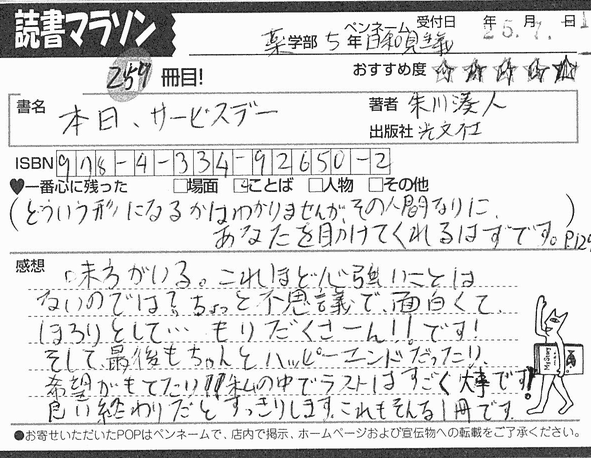 読書マラソン
薬学部 5年 ペンネーム 日和見主義 受付日 25年7月1日
257冊目! おすすめ度 ☆☆☆☆☆
書名 本日、サービスデー
著者 朱川湊人
出版社 光文社
ISBN 978-4-334-92650-2
♥一番心に残った □場面 ☑ことば □人物 □その他
(どういう形になるかはわかりませんが、その人間なりに、
あなたを助けてくれるはずです。) P.124
感想
味方がいる。これほど心強いことは
ないのでは?ちょっと不思議で、面白くて、
ほろりとして…もりだくさーん!!です!
そして、最後もちゃんとハッピーエンドだったり、
希望がもてたり!!私の中でラストはすごく大事です!
良い終わりだとすっきりします。これもそんな1冊です。
●お寄せいただいたPOPはペンネームで、店内で掲示、ホームページおよび宣伝物への転載をご了承ください。